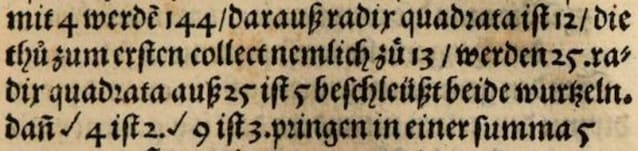 mit 4 werdẽ 144/darauß radix quadrata ist 12/ die
thů zum ersten collect nemlich zů 13 / werden 25.ra⸗
dix quadrata auß 25 ist 5 beschleüßt beide wurtzeln.
dañ √ 4 ist 2.√ 9 ist 3.pringen in einer summa 5